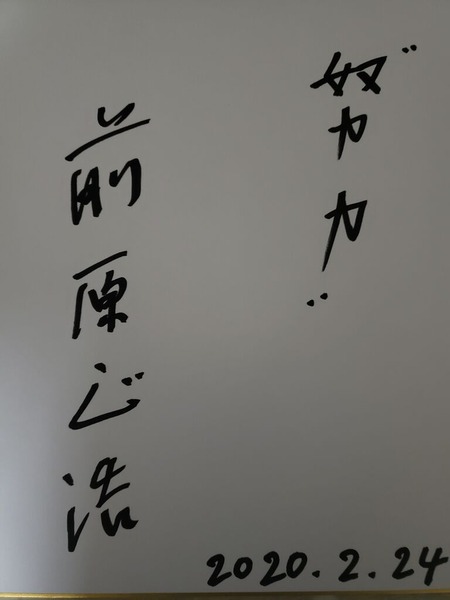 "努力"
前原正浩
2020.2.24